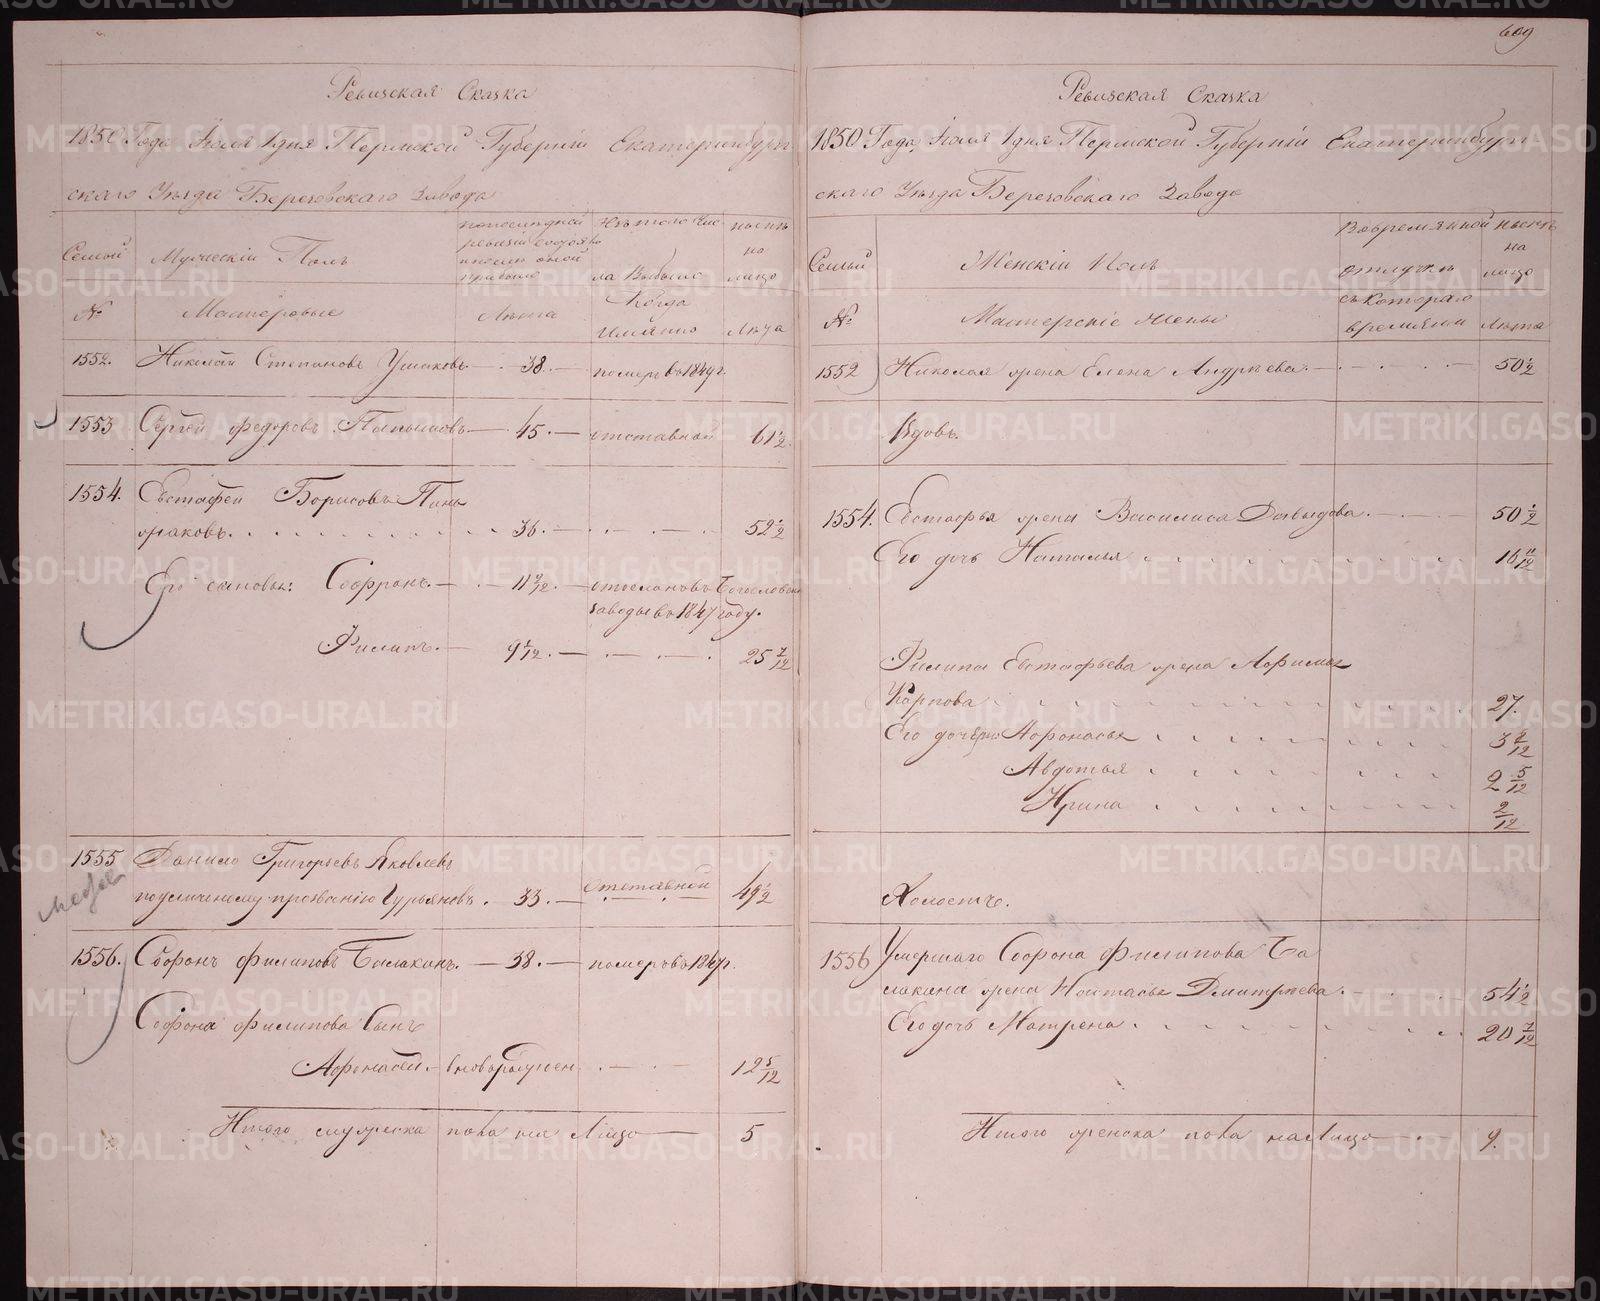 609
Ревизская Сказка
1850 Года Маія 1 дня Пермской Губерніи Екатеринбург
скаго Уѣзда Березовскаго Завода
Семьи
Мужескій Полъ
по последней ревизіи состояло и после оной прибыло
Изъ того числа Выбыло
ныне на лицо
№
Мастеровые
Лѣта
Когда Имянно
Лѣта
1552. Николай Степановъ Ушаковъ 38. померъ в 1849 г.
1553 Сергей Федоровъ Паньшинъ 45. отставной 61 1/2
1554. Евстафей Борисовъ Пань
шаковъ. 36. 52 1/2
Его сыновья: Софронъ. 11 9/12. отосланъ въ Богословскіе
заводы въ 1847 году.
Филипъ. 9 1/12. 25 7/12
1555 Данило Григорьевъ Яковлевъ
по уличному прозванію Гурьяновъ. 33. отставной 49 1/2
1556. Софронъ Филиповъ Балакинъ. 38. померъ в 1849 г.
Софрона Филипова Сынъ
Афонасей. вновь рожден 12 5/12
Итого мужеска пола на Лицо 5
Ревизская Сказка
1850 Года, Маія 1 дня Пермской Губерніи Екатеринбург
скаго Уѣзда Березовскаго Завода
Семьи
Женскій Полъ
Во временной отлучке
ныне на лицо
№
Мастерскіе жены
съ котораго времяни
Лѣта
1552 Николая жена Елена Андреева. 50 1/2
Вдовъ.
1554. Евстафья жена Василиса Давыдова. 50 1/2
Его дочь Наталья 16 11/12
Филипа Евстафьева жена Афимья
Карпова 27.
Его дочери Афонасья 3 8/12
Авдотья 2 5/12
Ирина 2/12
Холостъ.
1556 Умершаго Софрона Филипова Ба
лакина жена Настасья Дмитрѣева. 54 1/2
Его дочь Матрена. 20 7/12
Итого женска пола на Лицо 9.
METRIKI.GASO-URAL.RU